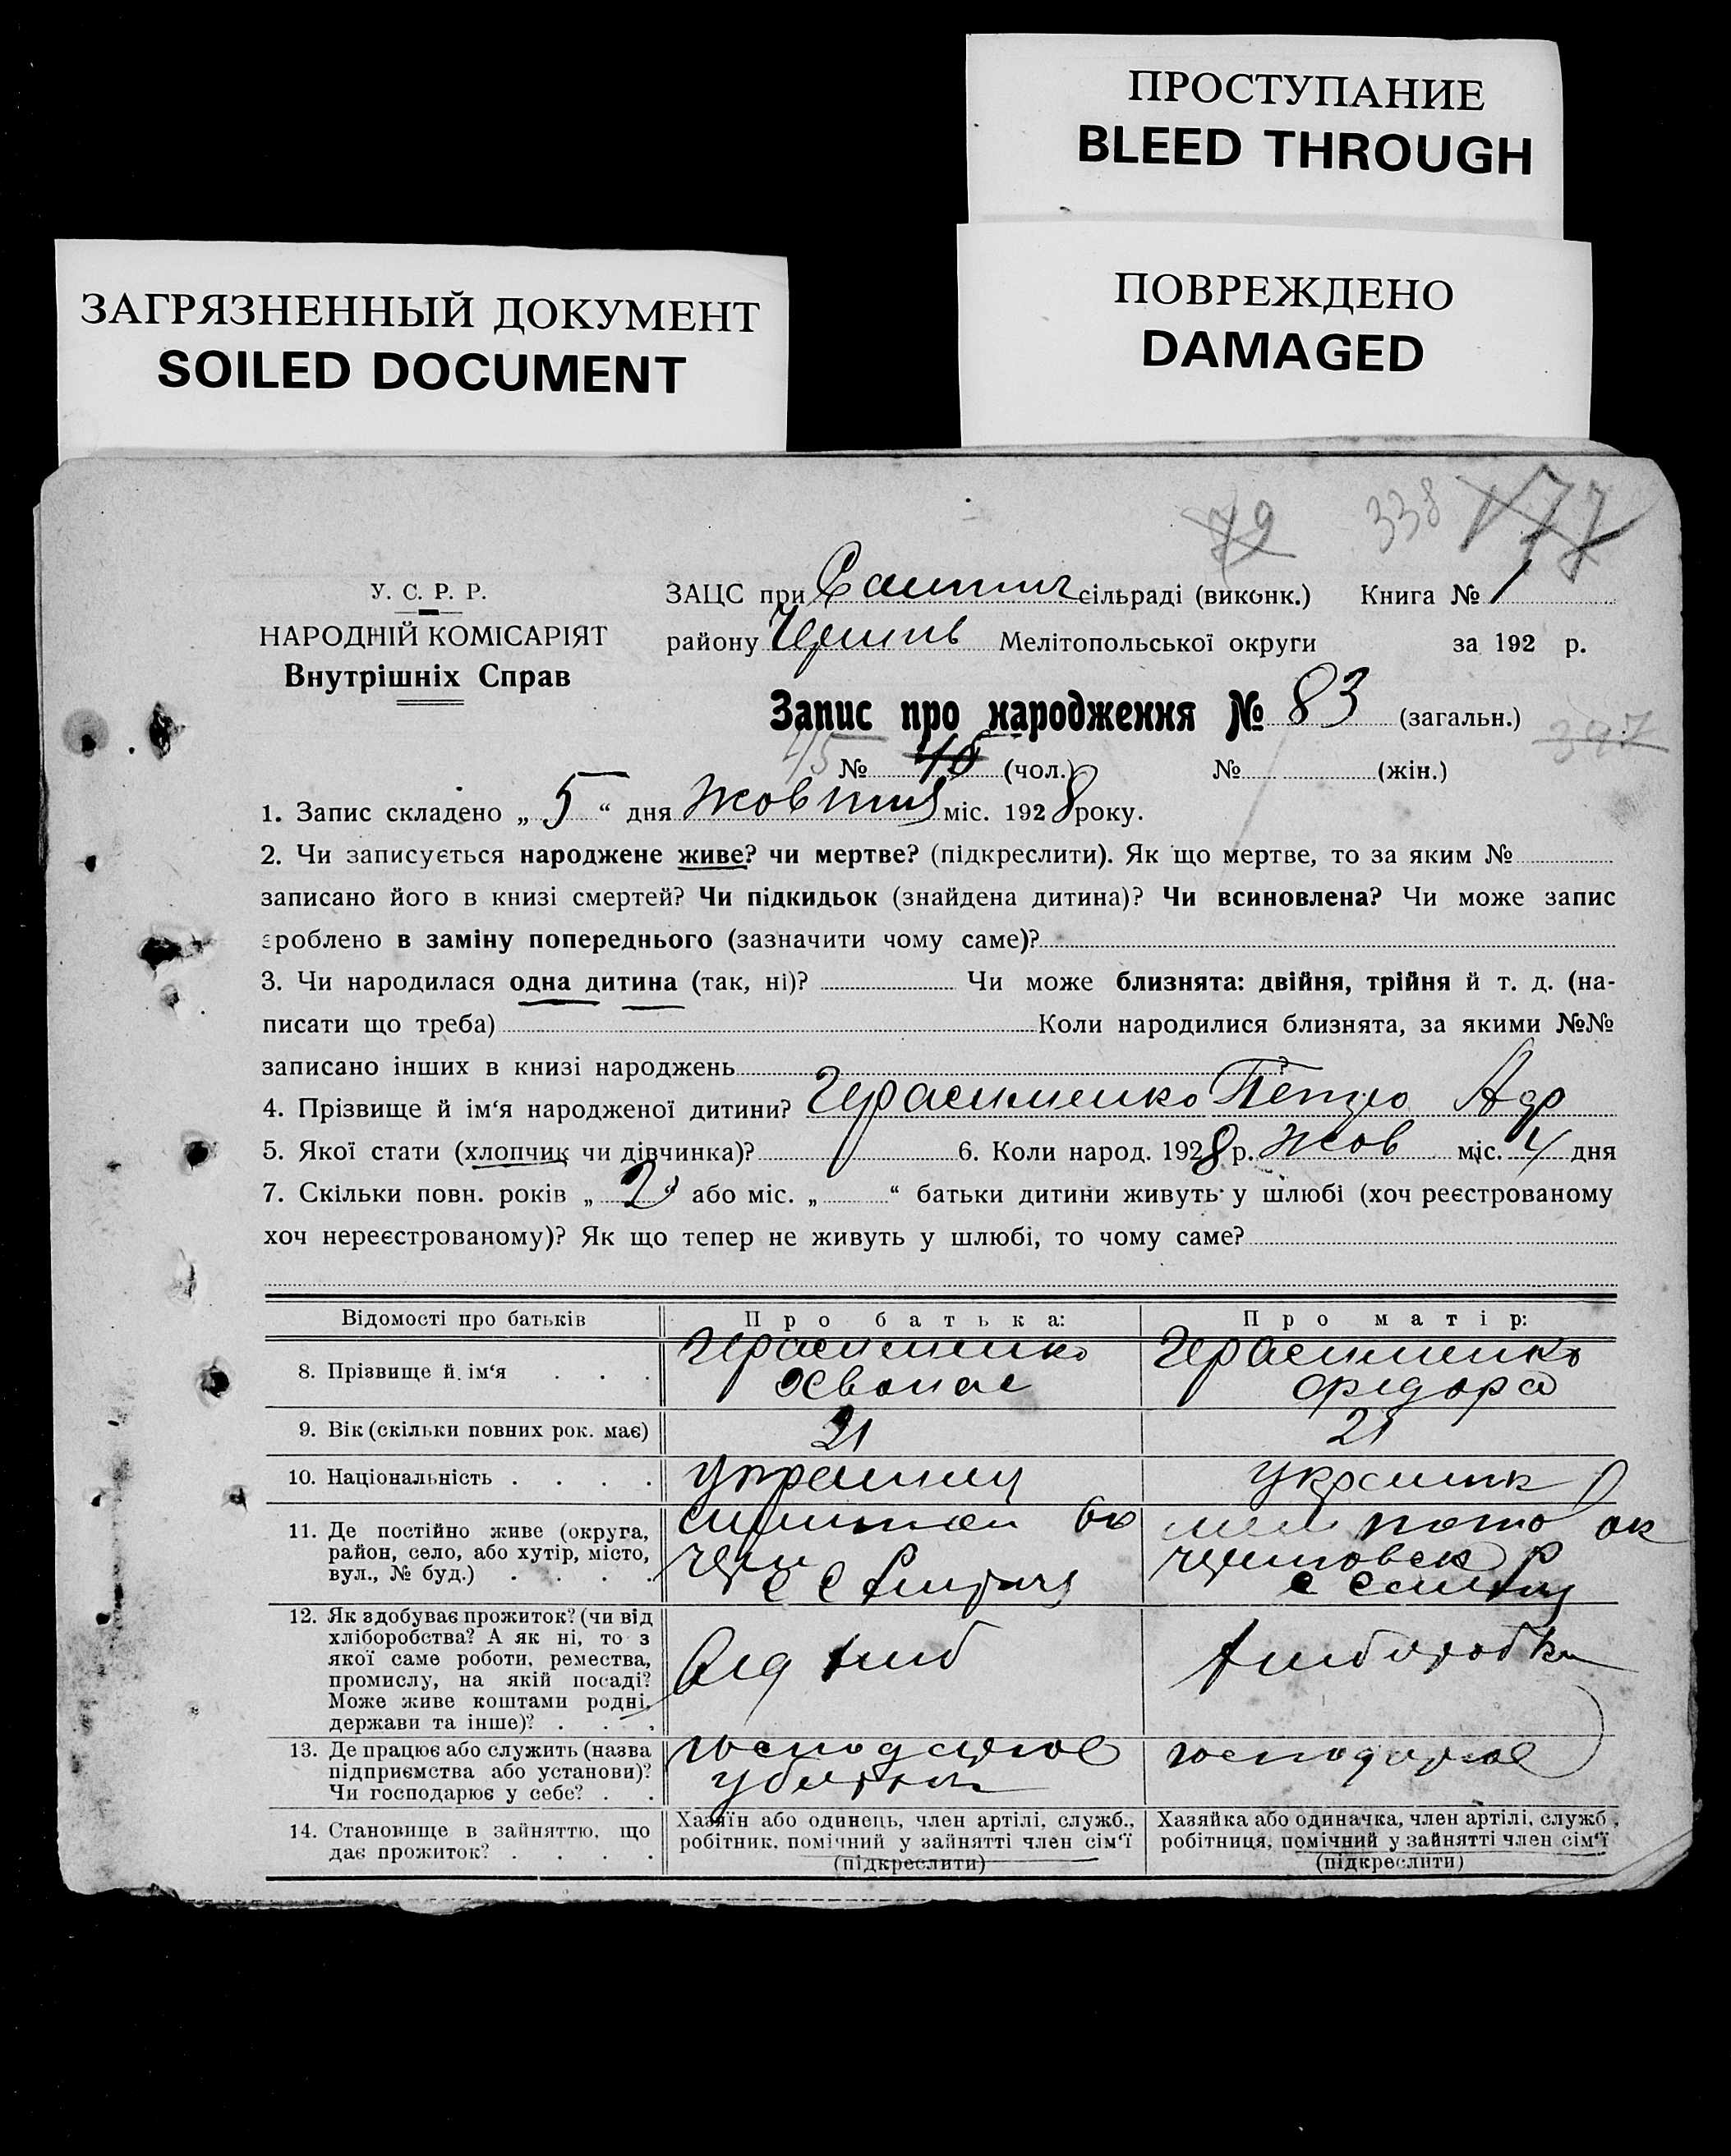 ПРОСТУПАНИЕ
BLEED THROUGH
ЗАГРЯЗНЕННЫЙ ДОКУМЕНТ
SOILED DOCUMENT
ПОВРЕЖДЕНО
DAMAGED
79 338 177
У. С. Р. Р.
НАРОДНІЙ КОМІСАРІЯТ
Внутрішніх Справ
ЗАЦС при сільраді (виконк.) Книга № 1
району Мелітопольської округи за 192 р.
Запис про народження № 83 (загальн.) 397
45 № 46 (чол.) № (жін.)
1. Запис складено „ 5 “ дня Жовтня міс. 1928 року.
2. Чи записується народжене живе? чи мертве? (підкреслити). Як що мертве, то за яким №
записано його в книзі смертей? Чи підкидьок (знайдена дитина)? Чи всиновлена? Чи може запис
зроблено в заміну попереднього (зазначити чому саме)?
3. Чи народилася одна дитина (так, ні)? Чи може близнята: двійня, трійня й т. д. (на-
писати що треба) Коли народилися близнята, за якими №№
записано інших в книзі народжень
4. Прізвище й ім‘я народженої дитини? Герасименко Петро
5. Якої стати (хлопчик чи дівчинка)? 6. Коли народ. 1928 р. Жов міс. 4 дня
7. Скільки повн. років „ 2 “ або міс. „ “ батьки дитини живуть у шлюбі (хоч реєстрованому
хоч нереєстрованому)? Як що тепер не живуть у шлюбі, то чому саме?
Відомості про батьків Про батька: Про матір:
8. Прізвище й ім‘я . . . Герасименко Герасименко
9. Вік (скільки повних рок. має) 21 21
10. Національність . . . .
11. Де постійно живе (округа,
район, село, або хутір, місто,
вул., № буд.) . . . .
12. Як здобуває прожиток? (чи від
хліборобства? А як ні, то з
якої саме роботи, ремества,
промислу, на якій посаді?
Може живе коштами родні,
держави та інше)? . . .
від хліб хлібороб
13. Де працює або служить (назва
підприємства або установи)?
Чи господарює у себе? . .
господарює господарює
14. Становище в зайняттю, що
дає прожиток? . . . .
Хазяїн або одинець, член артілі, служб.,
робітник, помічний у зайнятті член сім‘ї
(підкреслити)
Хазяйка або одиначка, член артілі, служб.,
робітниця, помічний у зайнятті член сім‘ї
(підкреслити)